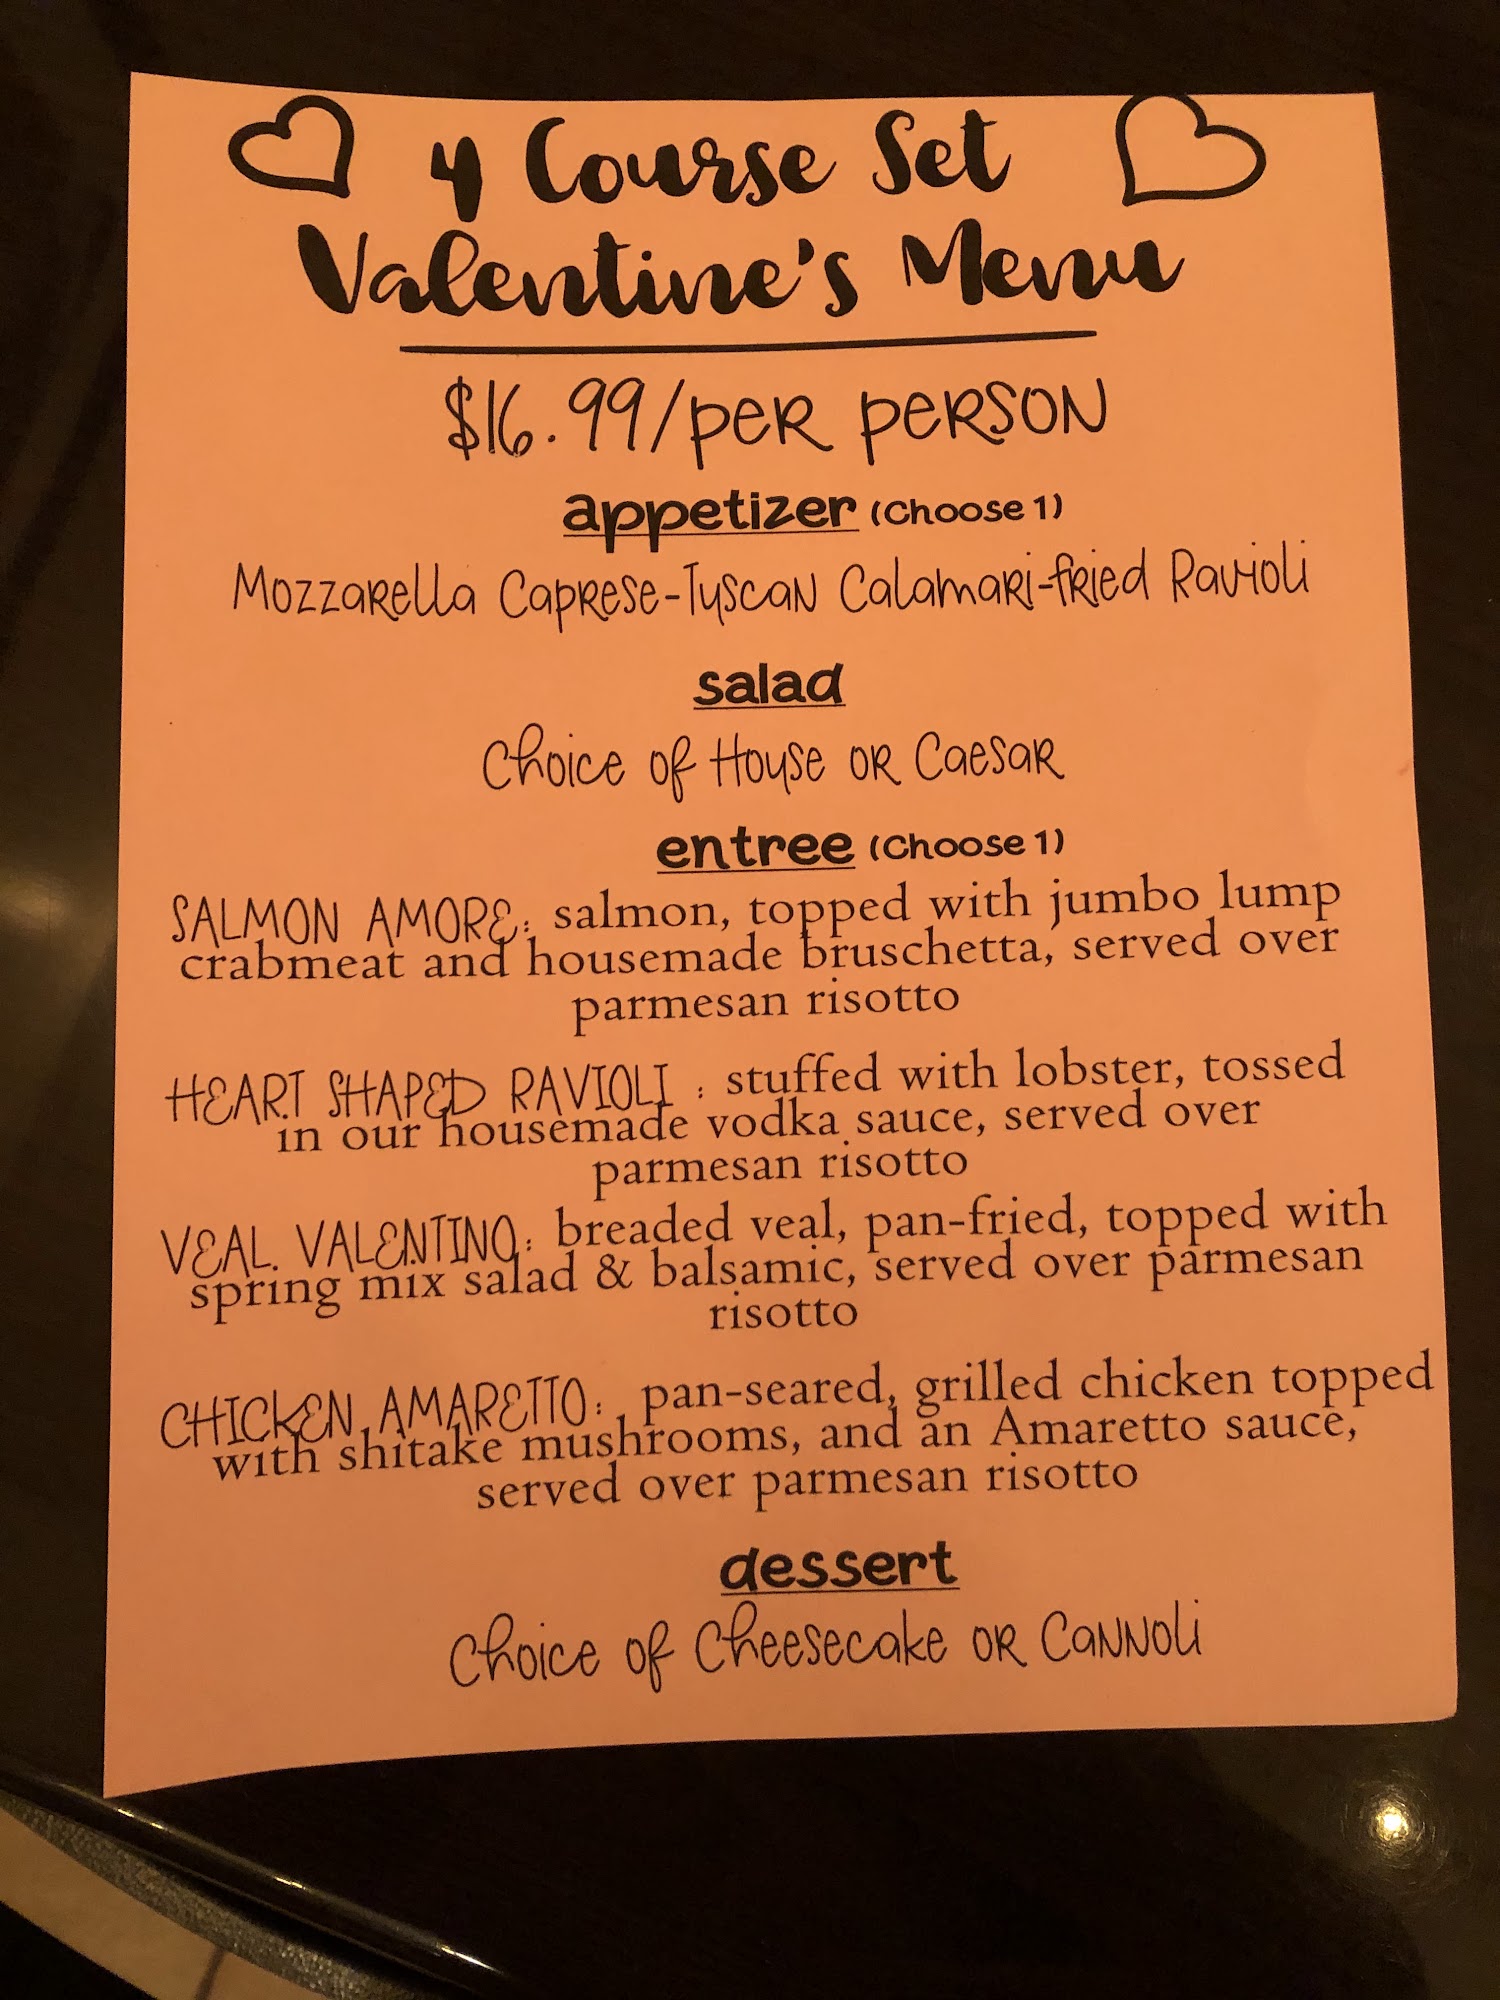 4 Course Set
Valentine's Menu
$16.99/per person
appetizer (Choose 1)
Mozzarella Caprese-Tuscan Calamari-fried Ravioli
salad
Choice of House or Caesar
entree (Choose 1)
SALMON AMORE: salmon, topped with jumbo lump
crabmeat and housemade bruschetta, served over
parmesan risotto
HEART SHAPED RAVIOLI : stuffed with lobster, tossed
in our housemade vodka sauce, served over
parmesan risotto
VEAL VALENTINO: breaded veal, pan-fried, topped with
spring mix salad & balsamic, served over parmesan
risotto
CHICKEN AMARETTO: pan-seared, grilled chicken topped
with shitake mushrooms, and an Amaretto sauce,
served over parmesan risotto
dessert
Choice of Cheesecake or Cannoli